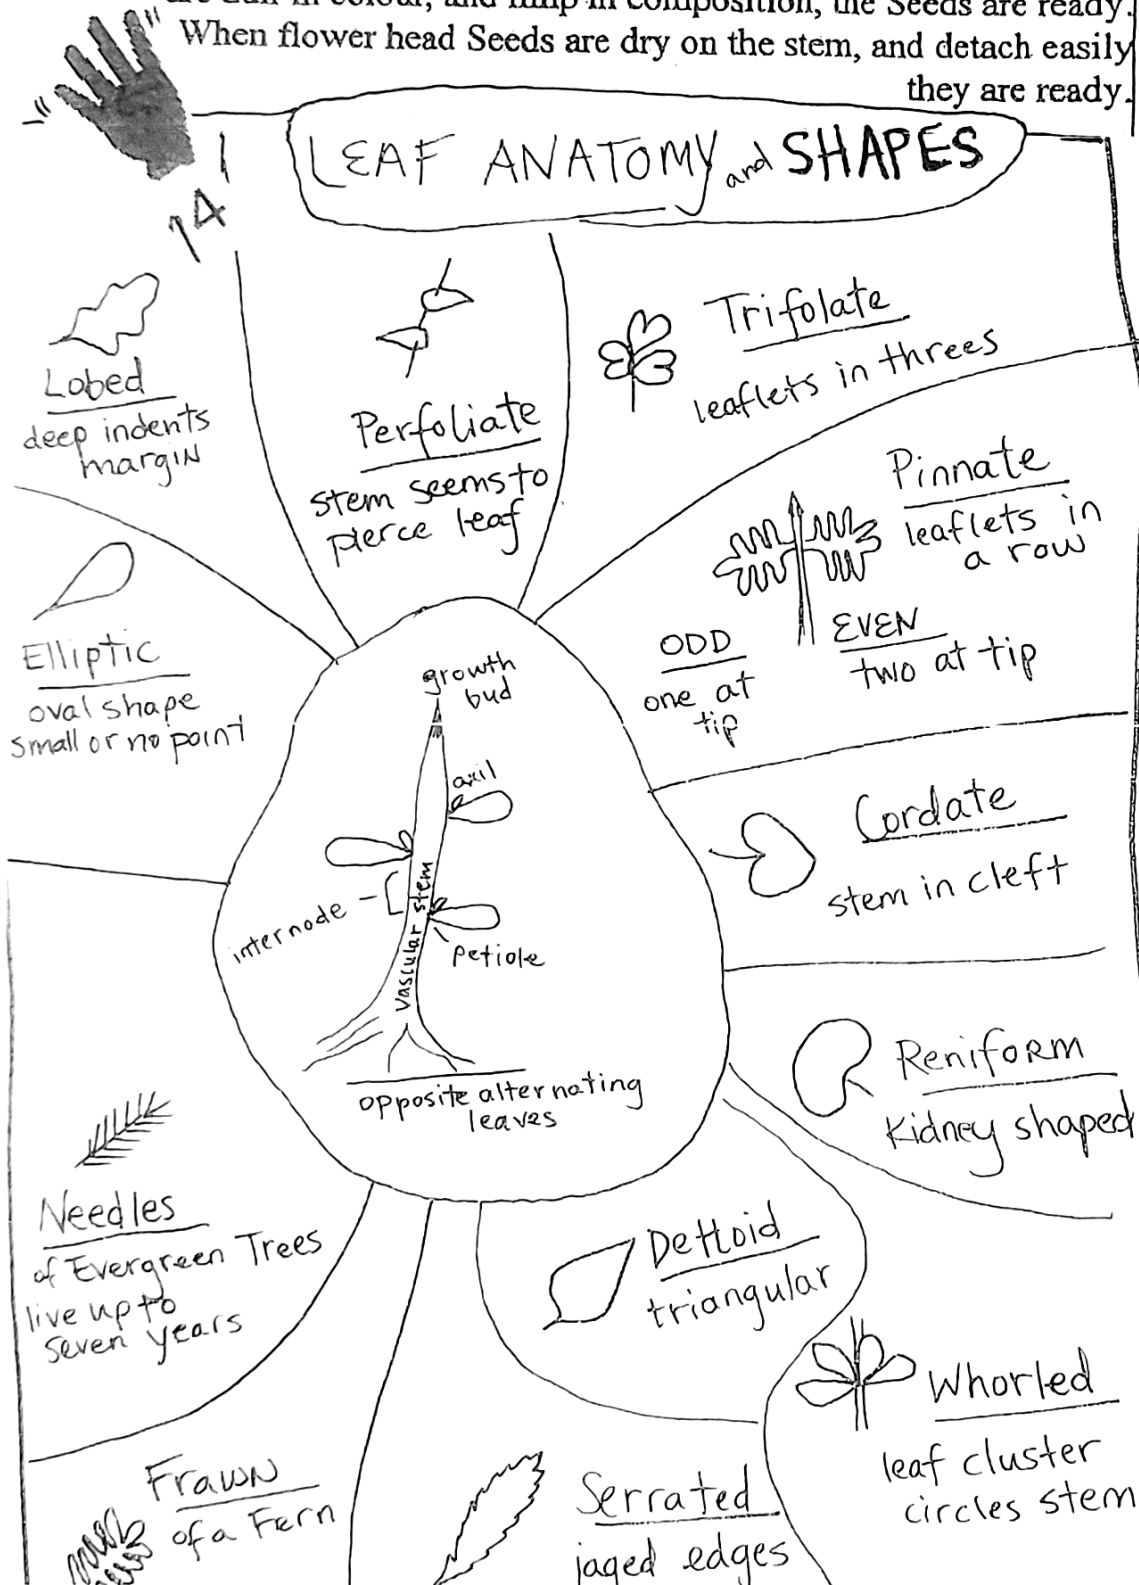 are dull in colour, and limp in composition, the Seeds are ready.
When flower head Seeds are dry on the stem, and detach easily
they are ready.
14
LEAF ANATOMY and SHAPES
Lobed
deep indents
margin
Perfoliate
stem seems to
pierce leaf
Trifolate
leaflets in threes
Pinnate
leaflets in
a row
ODD
one at
tip
EVEN
two at tip
Elliptic
oval shape
small or no point
growth
bud
axil
internode
vascular stem
petiole
opposite alternating
leaves
Cordate
stem in cleft
Reniform
Kidney shaped
Needles
of Evergreen Trees
live up to
seven years
Deltoid
triangular
Whorled
leaf cluster
circles stem
Frawn
of a Fern
Serrated
jaged edges